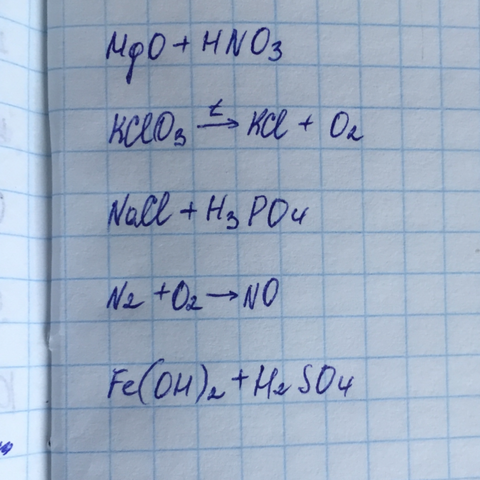 MgO + HNO3
KClO3 t→ KCl + O2
NaCl + H3PO4
N2 + O2 → NO
Fe(OH)2 + H2SO4